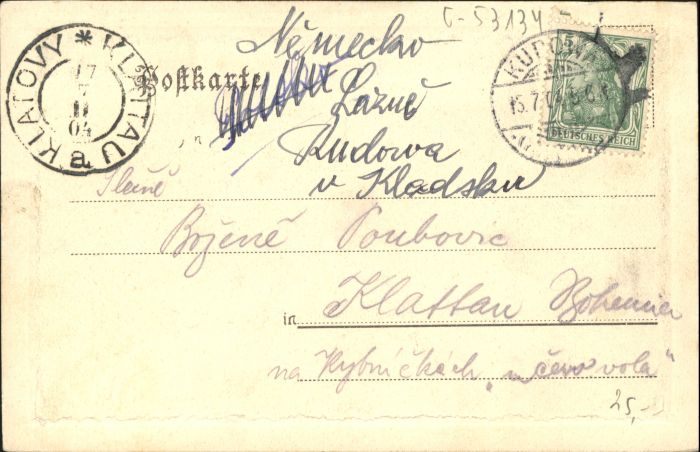 G-53134
Německo
Postkarte
Lázně
Kudowa
v Kladsku
KLATOVY * KLATTAU
17
7
II
04
a
KUDOWA
5
DEUTSCHES REICH
in
Slečně
Boženě Poubovic
in Klattau Bohemia
na Rybníčkách, "u červ vola"
25,-